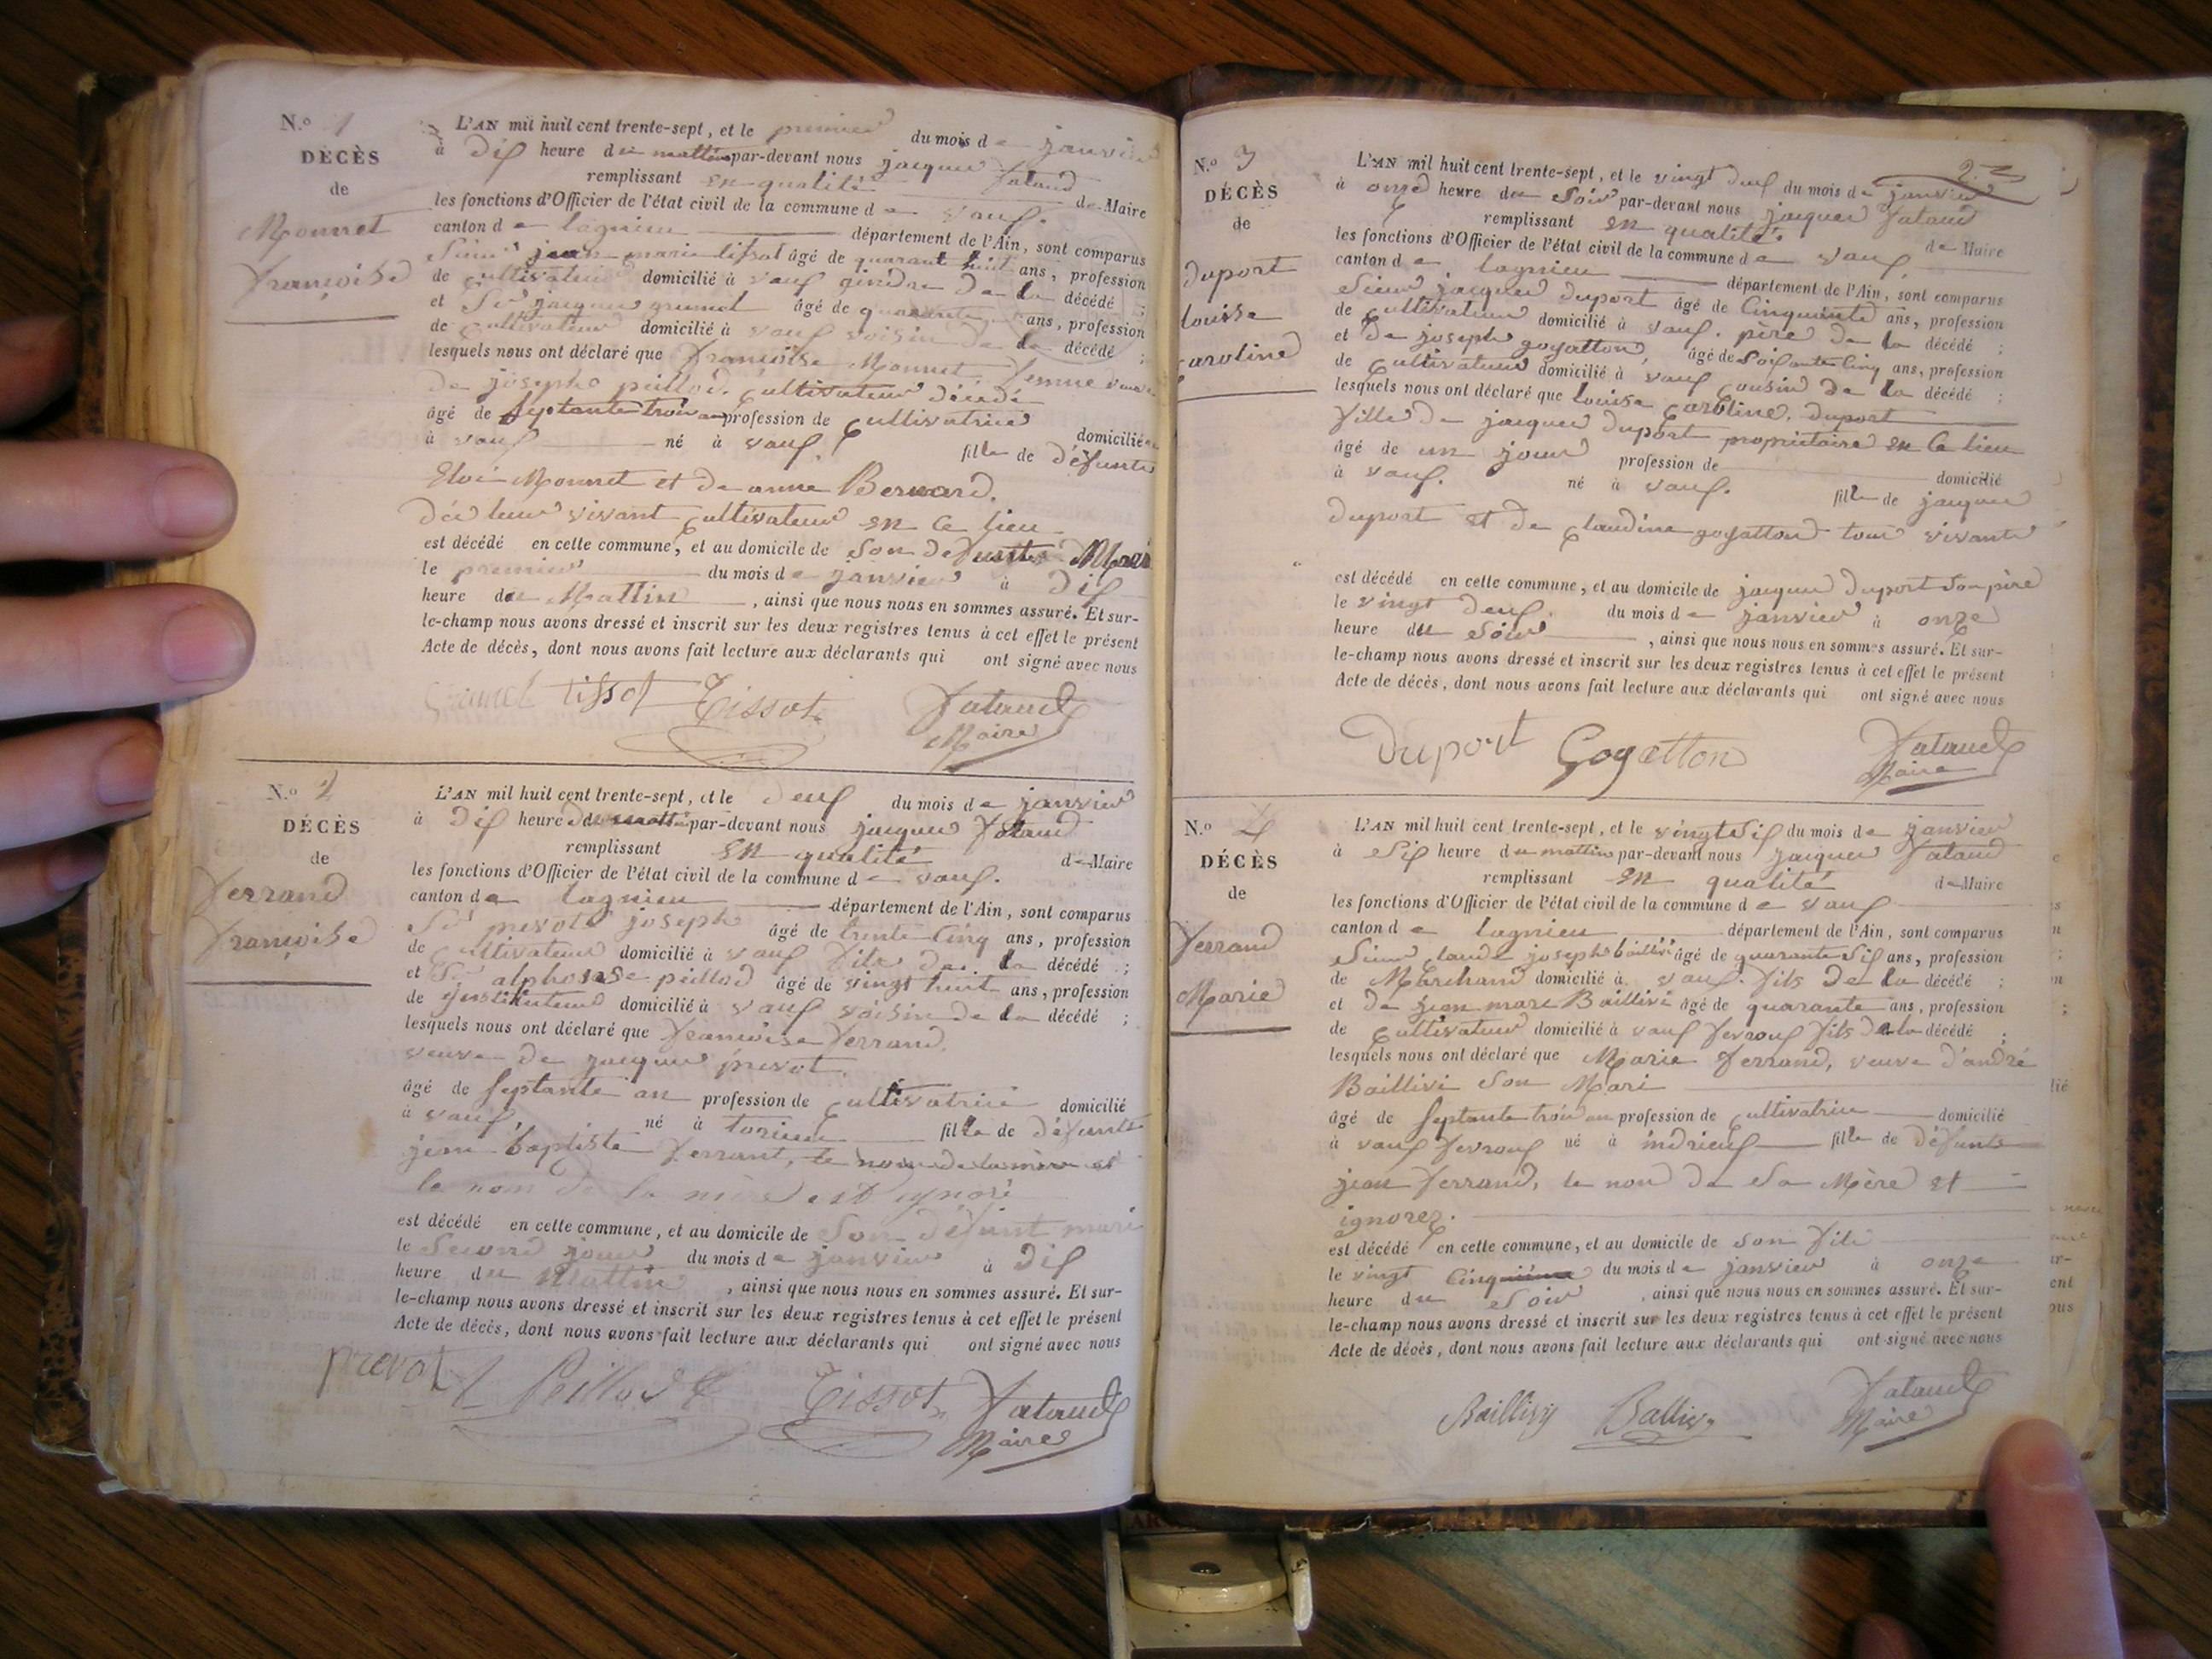 N.o 1
DÉCÈS
de
Monnet
françoise
L'AN mil huit cent trente-sept, et le premier du mois de janvier
à dix heure du mattin par-devant nous jacques fataud
remplissant en qualité de Maire
les fonctions d'Officier de l'état civil de la commune de vaux.
canton de lagnieu département de l'Ain, sont comparus
jean marie tissot âgé de quarant huit ans, profession
de cultivateur domicilié à vaux gindre de la décédé ;
et Sr jacques grumel âgé de quarante ans, profession
de cultivateur domicilié à vaux voisin de la décédé ;
lesquels nous ont déclaré que françoise Monnet femme veuve
de joseph peillod. cultivateur décédé
âgé de septante trois an profession de cultivatrice domicilié
à vaux né à vaux. fille de défunts
Eloi Monnet et de anne Bernard.
de leur vivant cultivateur en ce lieu
est décédé en cette commune, et au domicile de son defunt Mari
le premier du mois de janvier à dix
heure du Mattin, ainsi que nous nous en sommes assuré. Et sur-
le-champ nous avons dressé et inscrit sur les deux registres tenus à cet effet le présent
Acte de décès, dont nous avons fait lecture aux déclarants qui ont signé avec nous
Grumel tissot Tissot fataud
Maire
N.o 2
DÉCÈS
de
ferrand
françoise
L'AN mil huit cent trente-sept, et le deux du mois de janvier
à dix heure du mattin par-devant nous jacques fataud
remplissant en qualité de Maire
les fonctions d'Officier de l'état civil de la commune de vaux.
canton de lagnieu département de l'Ain, sont comparus
Sr prevot joseph âgé de trente cinq ans, profession
de cultivateur domicilié à vaux fils de la décédé ;
et Sr alphonse peillod âgé de vingt huit ans, profession
de instituteur domicilié à vaux voisin de la décédé ;
lesquels nous ont déclaré que françoise ferrand.
veuve de jacques prevot.
âgé de septante an profession de cultivatrice domicilié
à vaux, né à torcieu fille de défunt
jean baptiste ferrant, le nom de la mère et
le nom de la mère est ignoré
est décédé en cette commune, et au domicile de son défunt mari
le second jour du mois de janvier à dix
heure du Mattin, ainsi que nous nous en sommes assuré. Et sur-
le-champ nous avons dressé et inscrit sur les deux registres tenus à cet effet le présent
Acte de décès, dont nous avons fait lecture aux déclarants qui ont signé avec nous
prevot Peillod Tissot fataud
Maire
2
N.o 3
DÉCÈS
de
duport
louise
caroline
L'AN mil huit cent trente-sept, et le vingt deux du mois de janvier
à onze heure du soir par-devant nous jacques fataud
remplissant en qualité. de Maire
les fonctions d'Officier de l'état civil de la commune de vaux.
canton de lagnieu département de l'Ain, sont comparus
Sieur jacques duport âgé de cinquante ans, profession
de cultivateur domicilié à vaux. père de la décédé ;
et de joseph goyatton, âgé de soixante cinq ans, profession
de cultivateur domicilié à vaux cousin de la décédé ;
lesquels nous ont déclaré que louise caroline. duport
fille de jacques duport propriétaire en ce lieu
âgé de un jour profession de domicilié
à vaux. né à vaux. fille de jacques
duport et de claudine goyatton tous vivants
est décédé en cette commune, et au domicile de jacques duport son père
le vingt deux. du mois de janvier à onze
heure du soir, ainsi que nous nous en sommes assuré. Et sur-
le-champ nous avons dressé et inscrit sur les deux registres tenus à cet effet le présent
Acte de décès, dont nous avons fait lecture aux déclarants qui ont signé avec nous
Duport Goyatton fataud
Maire
N.o 4
DÉCÈS
de
ferrand
Marie
L'AN mil huit cent trente-sept, et le vingt six du mois de janvier
à six heure du mattin par-devant nous jacques fataud
remplissant en qualité de Maire
les fonctions d'Officier de l'état civil de la commune de vaux
canton de lagnieu département de l'Ain, sont comparus
Sieur claude joseph baillivi âgé de quarante six ans, profession
de Marchand domicilié à vaux. fils de la décédé ;
et de jean marc Baillivi âgé de quarante ans, profession
de cultivateur domicilié à vaux fevroux fils de la décédé ;
lesquels nous ont déclaré que Marie ferrand, veuve d'andré
Baillivi son Mari
âgé de septante trois an profession de cultivatrice domicilié
à vaux fevroux né à indrieux fille de défunts
jean ferrand, le nom de sa Mère et
ignorez.
est décédé en cette commune, et au domicile de son fils
le vingt cinq du mois de janvier à onze
heure du soir, ainsi que nous nous en sommes assuré. Et sur-
le-champ nous avons dressé et inscrit sur les deux registres tenus à cet effet le présent
Acte de décès, dont nous avons fait lecture aux déclarants qui ont signé avec nous
Baillivy Ballivy fataud
Maire